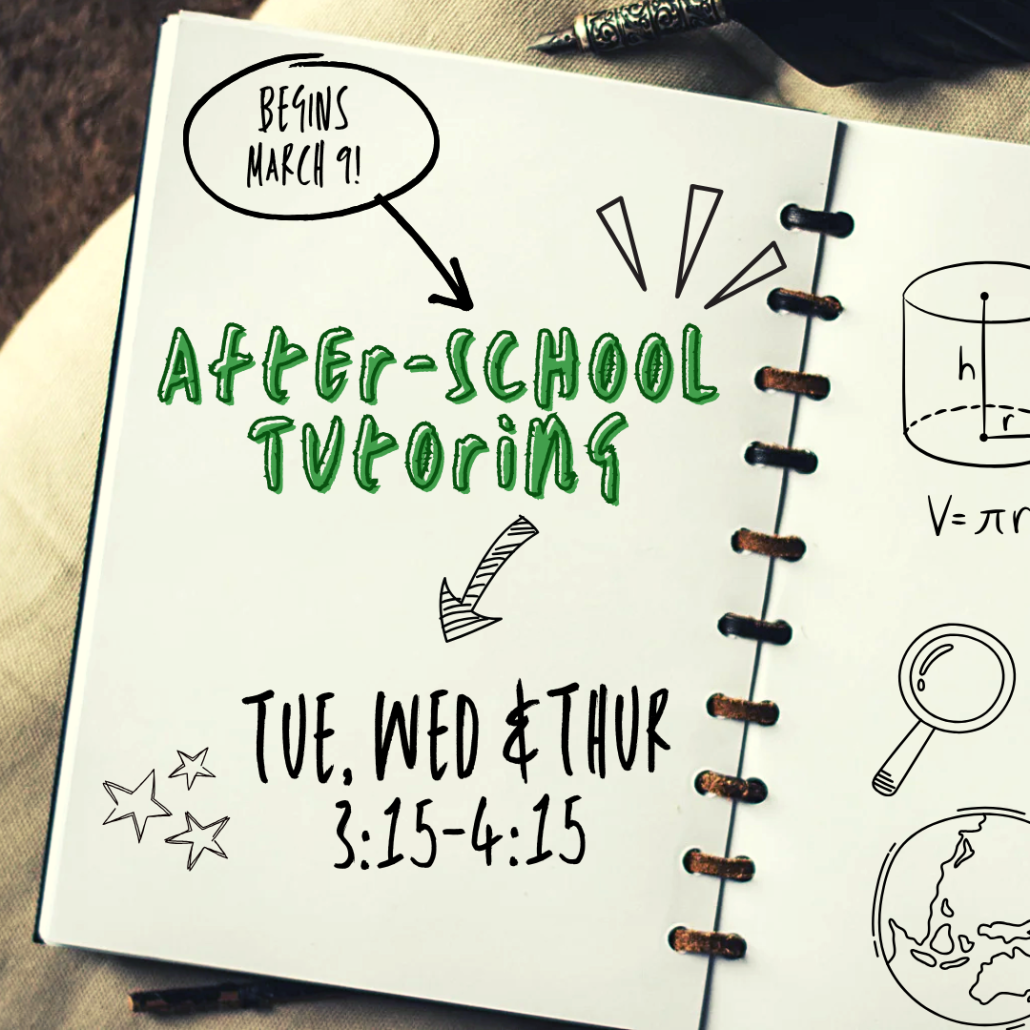 BEGINS
MARCH 9!
AftEr-SCHOOL
TutoriNG
TUE, WED & THUR
3:15-4:15
h
r
V= πr